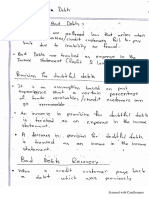 Debts
Bad Debts :
are
that arises when
credit customers fail to pay
due to inability or fraud.
Bad Debts are treated as expense in the
Income Statement (Profit & Loss)
Provision for doubtful debts
It is an assumption based on past
experience that a certain percentage
credit customers
become
An increase in provision for doubtful debts
is treated as an expense in the income
statement.
A decrease in provision for doubtful debts
is treated as an income in the income
statement.
Bad Debts Recovery
When a credit customer pays back
a debt which was previously
Scanned with CamScanner